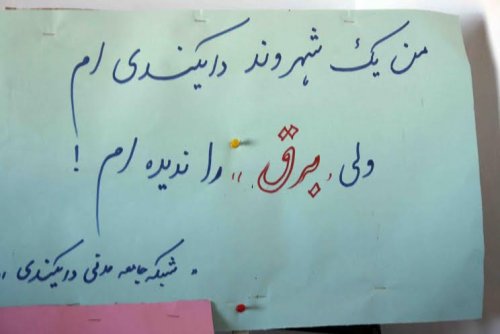 من یک شهروند دایکندی ام
ولی "برق" را ندیده ام !
شبکه جامعه مدنی دایکندی